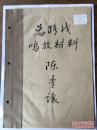 总路线
鸣放材料
陈季让